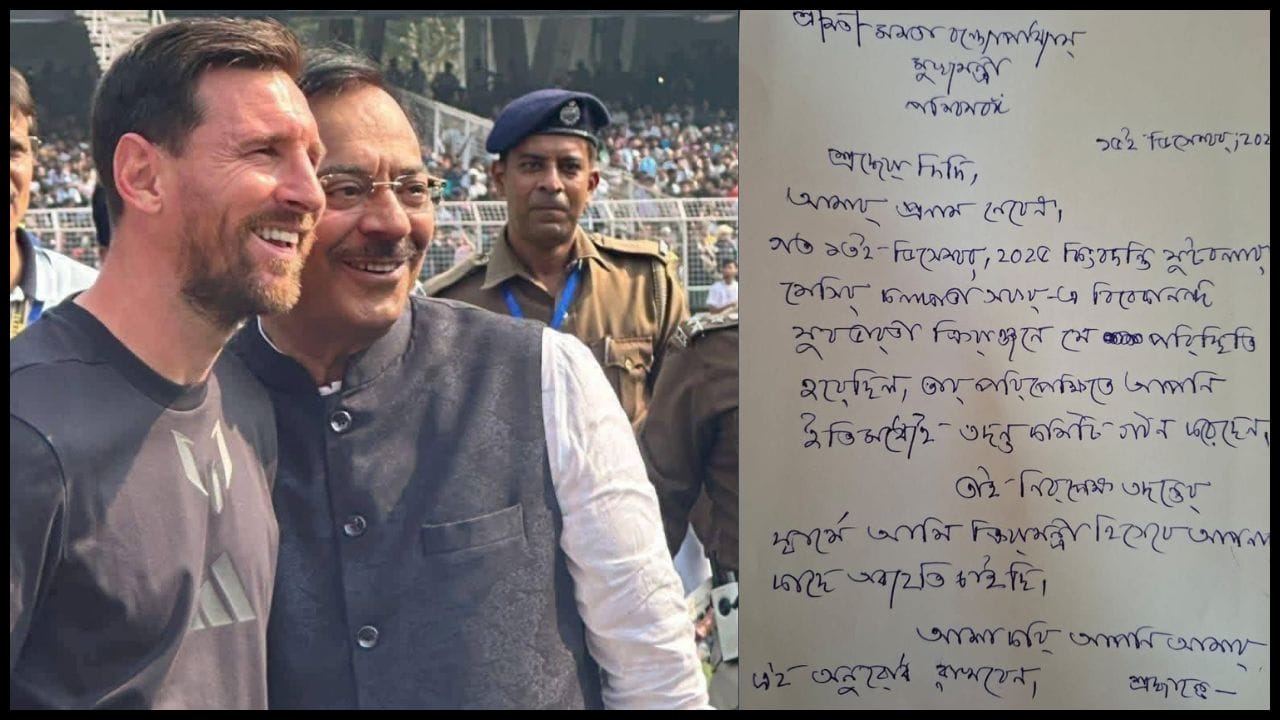 শ্রীমতী মমতা বন্দ্যোপাধ্যায়
মুখ্যমন্ত্রী
পশ্চিমবঙ্গ
১৫ই ডিসেম্বর, ২০২
শ্রদ্ধেয় দিদি,
আমার প্রণাম নেবেন।
গত ১৩ই ডিসেম্বর, ২০২৫ কিংবদন্তি ফুটবলার
মেসির কলকাতা সফর-এ বিবেকানন্দ
যুবভারতী ক্রীড়াঙ্গনে যে পরিস্থিতি
হয়েছিল, তার পরিপ্রেক্ষিতে আপনি
ইতিমধ্যেই তদন্ত কমিটি গঠন করেছেন।
তাই নিরপেক্ষ তদন্তের
স্বার্থে আমি ক্রীড়ামন্ত্রী হিসেবে আপনা
কাছে অব্যহতি চাইছি।
আশা করি আপনি আমার
এই অনুরোধ রাখবেন। শ্রদ্ধান্তে—